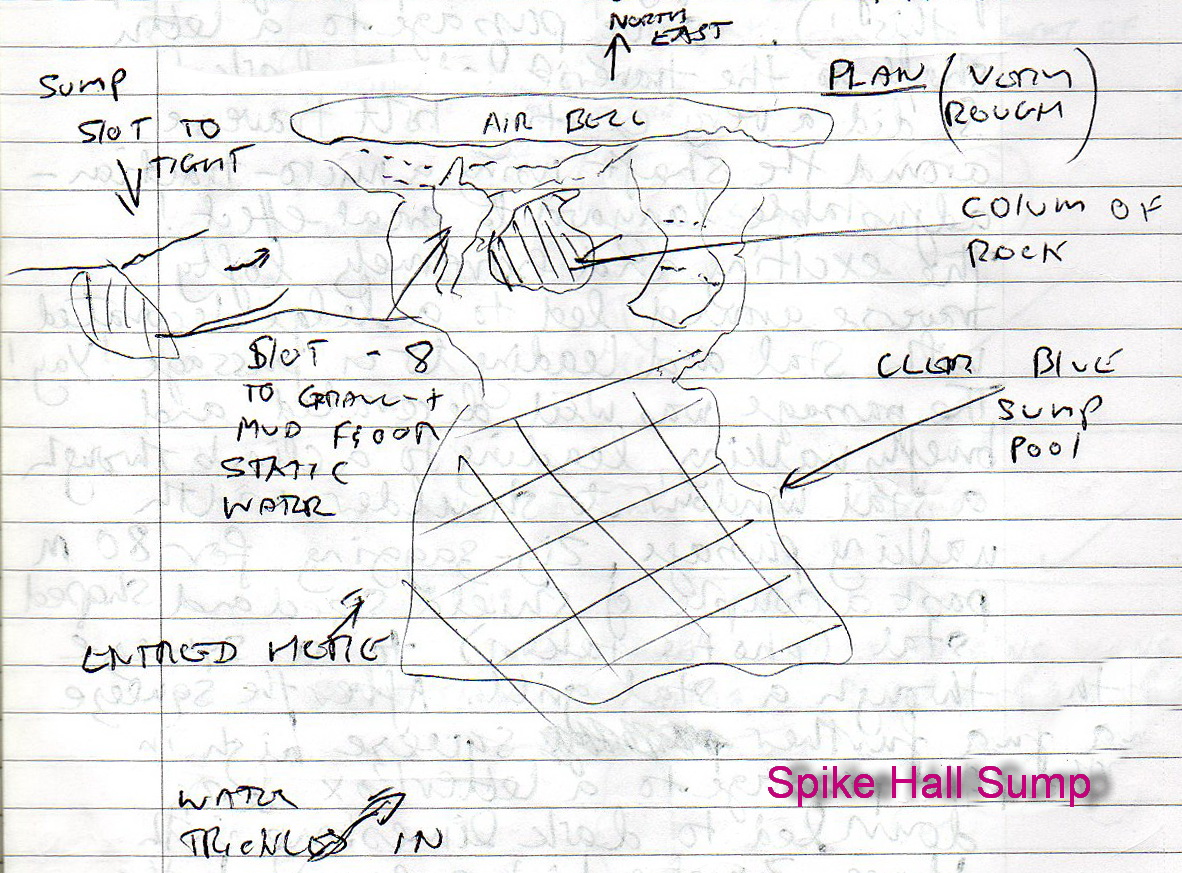 NORTH
EAST
PLAN (VERY
ROUGH)
SUMP
SLOT TO
TIGHT
AIR BELL
COLUM OF
ROCK
SLOT - 8
TO GRAVEL +
MUD FLOOR
STATIC
WATER
CLEAR BLUE
SUMP
POOL
ENTRED HERE
WATER
TRICKLES IN
Spike Hall Sump